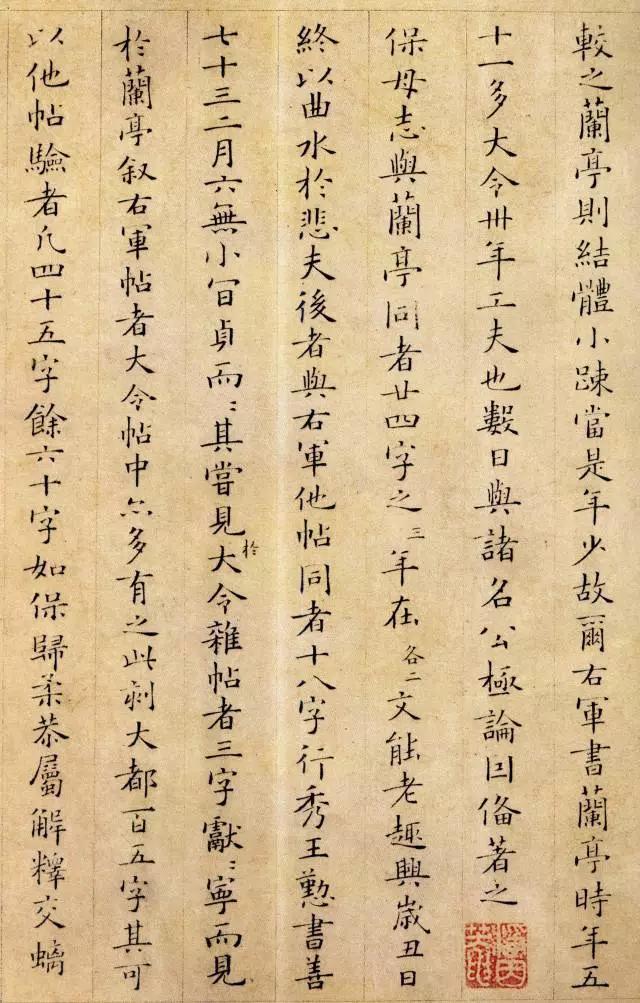 較之蘭亭則結體小疎當是年少故爾右軍書蘭亭時年五
十一多大令卅年工夫也數日與諸名公極論因俻著之
保母志與蘭亭同者廿四字之三年在各二文能老趣興歲丑日
終以曲水於悲夫後者與右軍他帖同者十八字行秀王懃書善
七十三二月六無小官貞而〻其嘗見於大令雜帖者三字獻〻寧而見
於蘭亭叙右軍帖者大令帖中亦多有之此刻大都一百五字其可
以他帖驗者凡四十五字餘六十字如保歸柔恭屬解釋交螭